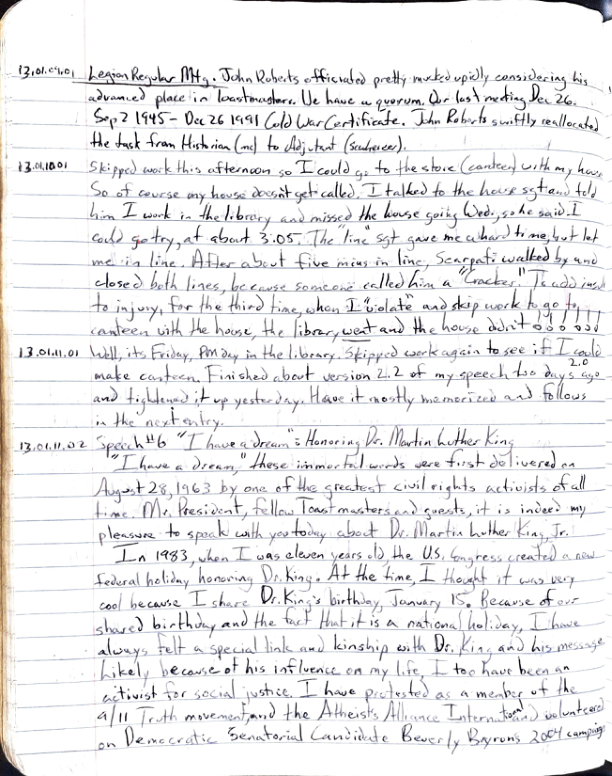 13.01.09.01 Legion Regular Mtg. John Roberts officiated pretty considering his
advanced place in Toastmasters. We have a quorum. Our last meeting Dec 26.
Sep 2 1945 - Dec 26 1991 Cold War Certificate. John Roberts swiftly reallocated
the task from Historian (me) to Adjutant
13.01.10.01 Skipped work this afternoon so I could go to the store (canteen) with my house
So of course my house doesn't get called. I talked to the house sgt and told
him I work in the library and missed the house going Wed., so he said I
could go try, at about 3:05. The "line" sgt gave me a hard time, but let
me in line. After about five mins in line, Scarpati walked by and
closed both lines, because someone called him a "Cracker." To add insult
to injury, for the third time, when I "violate" and skip work to go to
canteen with the house, the library went and the house didn't!!!!!
13.01.11.01 Well, its Friday, PM day in the library. Skipped work again to see if I could
make canteen. Finished about version 2.2 of my speech too days ago 2.0
and tightened it up yesterday. Have it mostly memorized and follows
in the next entry.
13.01.11.02 Speech #6 "I have a dream": Honoring Dr. Martin Luther King
"I have a dream," these immortal words were first delivered on
August 28, 1963 by one of the greatest civil rights activists of all
time. Mr. President, fellow Toastmasters and guests, it is indeed my
pleasure to speak with you today about Dr. Martin Luther King, Jr.
In 1983, when I was eleven years old, the U.S. Congress created a new
federal holiday honoring Dr. King. At the time, I thought it was very
cool because I share Dr. King's birthday, January 15. Because of our
shared birthday and the fact that it is a national holiday, I have
always felt a special link and kinship with Dr. King and his message
Likely because of his influence on my life, I too have been an
activist for social justice. I have protested as a member of the
9/11 Truth movement, and the Atheists Alliance International and volunteered
on Democratic Senatorial Candidate Beverly Byron's 2004 campaign